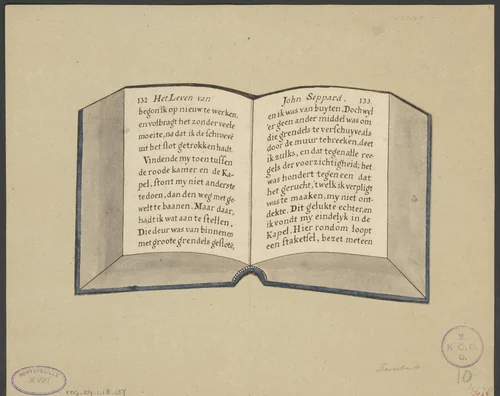 132 Het Leven van
begon ik op nieuw te werken,
en volbragt het zonder veele
moeite, na dat ik de schroeve
uit het slot getrokken hadt.
Vindende my toen tussen
de roode kamer en de Ka-
pel, stont my niet anders te
te doen, dan den weg met ge-
welt te baanen. Maar daar,
hadt ik wat aan te stellen,
Die deur was van binnen en
met groote grendels geslote,
John Seppard. 133
en ik was van buyten. Doch wyl
'er geen ander middel was om
die grendels te verschuyve als
door de muur te breeken, deet
ik zulks, en dat tegen alle ree-
gels der voorzichtigheid; het
was hondert tegen een dat
het gerucht, 't welk ik verpligt
was te maaken, my niet ont-
dekte. Dit gelukte echter, en
ik vondt my eindelyk in de
Kapel. Hier rondom loopt
een staketsel, bezet met een
MONTEFEUILLE
XVIII
K.O.G.
10